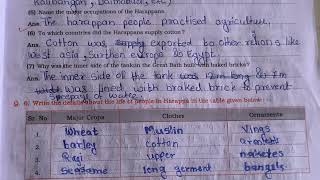 Kalibangan, Balmabuc, etc
(5) Name the major occupations of the Harappans.
Ans. The harappan people practised agriculture,
(6) To which countries did the Harappans supply cotton?
Ans. Cotton was exported to other regions like
west asia, surthen europe
(7) Why was the inner side of the tank in the Great Bath built with baked bricks?
Ans. The inner side of the tank
was lined with braked brick to prevent
seepage of water
Q. 6) Write the details about the life of people in Harappa in the table given below:
Sr. No Major Crops Clothes Ornaments
1. Wheat Muslin Vings
2. barley cotton armlets
3. Ragi upper
4. Seasame long germent bangels